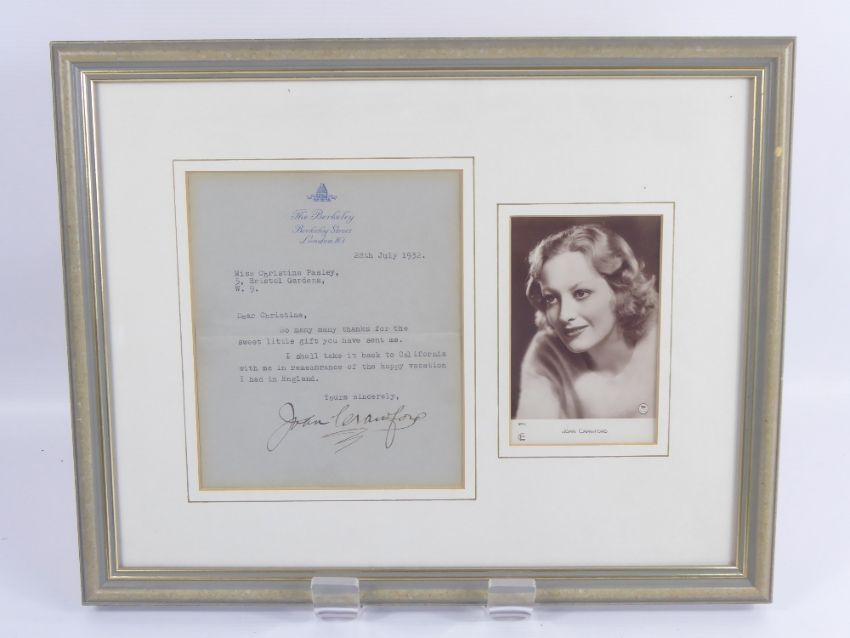 The Berkeley
Berkeley Street
London W.1
28th July 1932.
Miss Christina Pasley,
5, Bristol Gardens,
W. 9.
Dear Christina,
So many many thanks for the
sweet little gift you have sent me.
I shall take it back to California
with me in remembrance of the happy vacation
I had in England.
Yours sincerely,
Joan Crawford
JOAN CRAWFORD